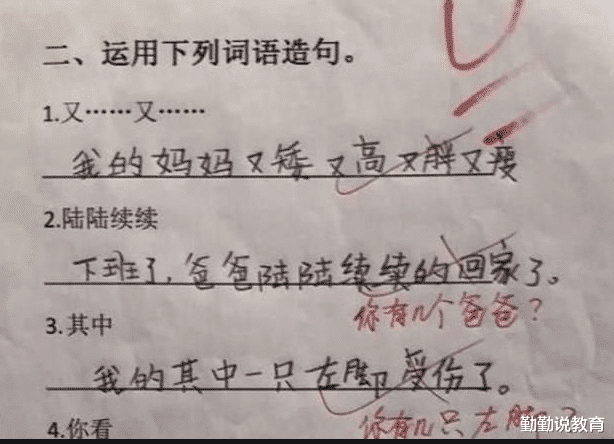 二、运用下列词语造句。
1.又……又……
我的妈妈又矮又高又胖又瘦
2.陆陆续续
下班了,爸爸陆陆续续的回家了。
你有几个爸爸?
3.其中
我的其中一只左脚受伤了。
4.你看
你有几只左脚?
勤勤说教育